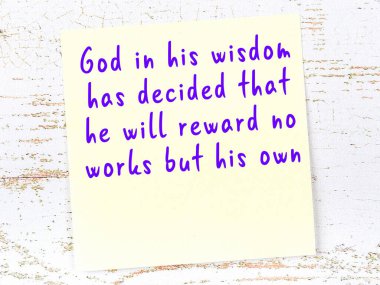 God in his wisdom
has decided that
he will reward no
works but his own